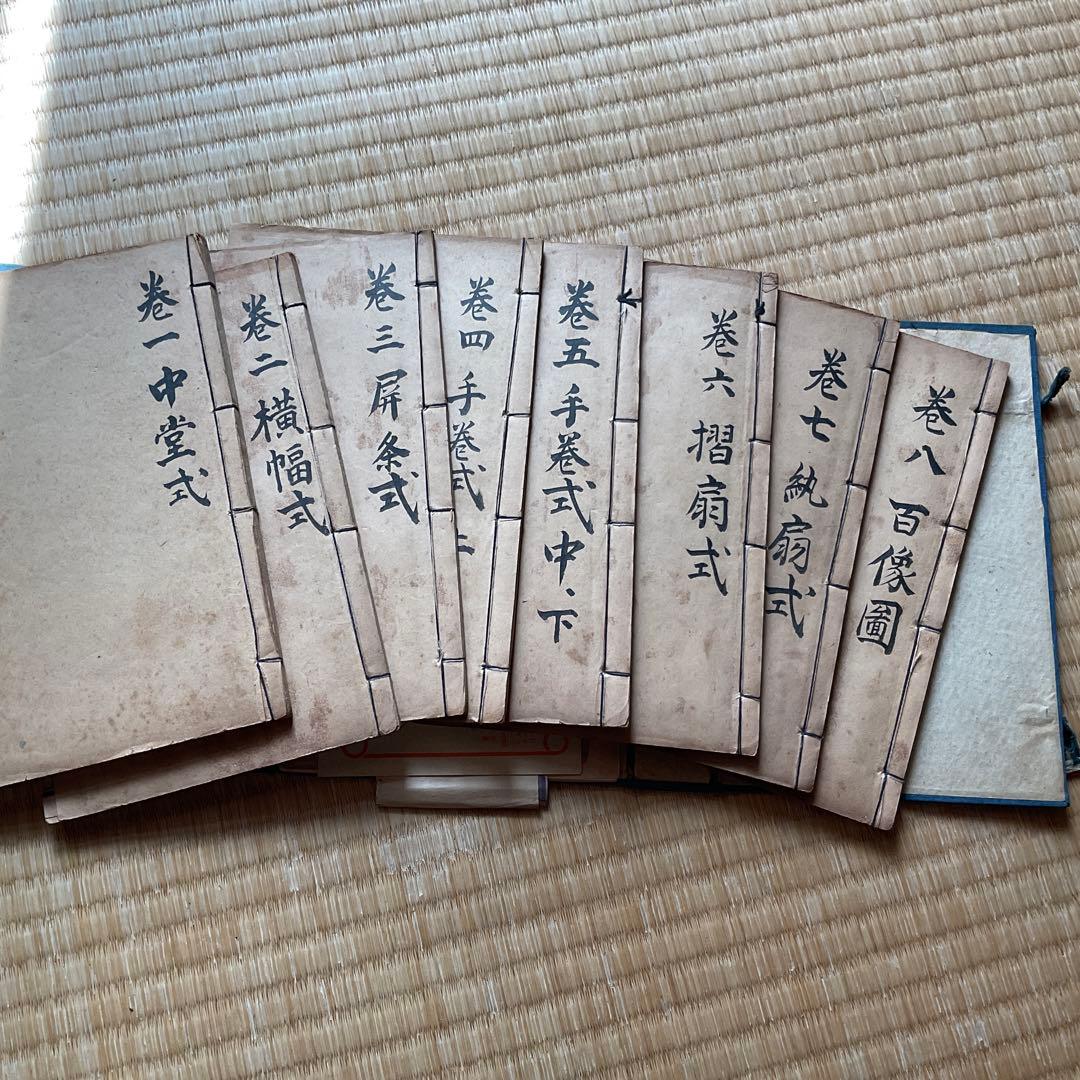 卷一 中堂式
卷二 横幅式
卷三 屏条式
卷四 手卷式 上
卷五 手卷式 中、下
卷六 摺扇式
卷七 紈扇式
卷八 百像圖